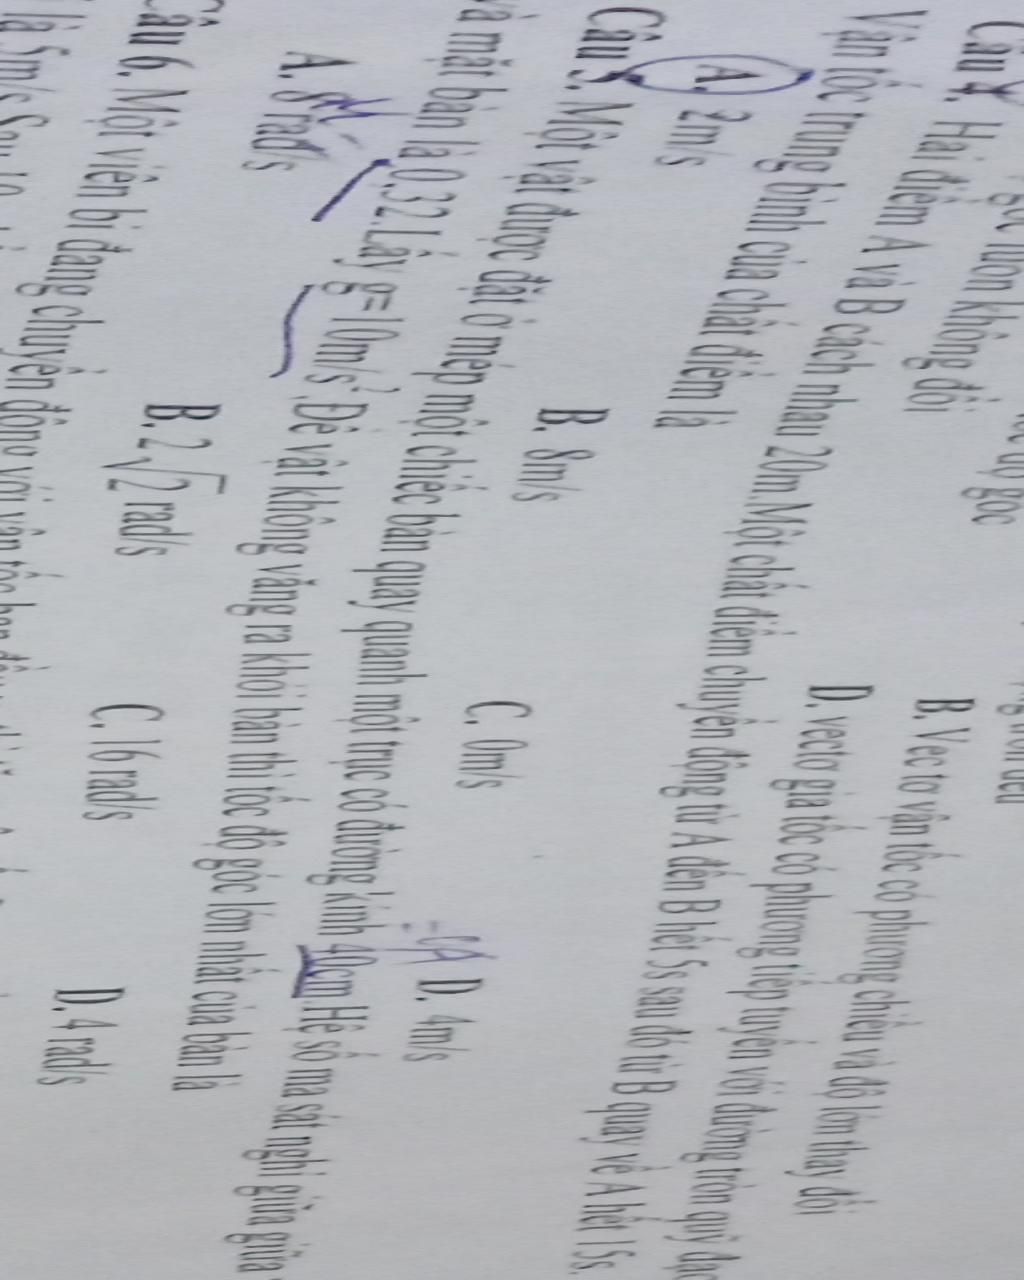 góc luôn không đổi
B. Vec tơ vận tốc có phương chiều và độ lớn thay đổi
D. vectơ gia tốc có phương tiếp tuyến với đường tròn quỹ đạo
Câu 4. Hai điểm A và B cách nhau 20m.Một chất điểm chuyển động từ A đến B hết 5s sau đó từ B quay về A hết 15s.
Vận tốc trung bình của chất điểm là
A. 2m/s B. 8m/s C. 0m/s D. 4m/s
Câu 5. Một vật được đặt ở mép một chiếc bàn quay quanh một trục có đường kính 40cm.Hệ số ma sát nghỉ giữa giữa
và mặt bàn là 0.32.Lấy g=10m/s².Để vật không văng ra khỏi bàn thì tốc độ góc lớn nhất của bàn là
A. 8 rad/s B. 2√2 rad/s C. 16 rad/s D. 4 rad/s
Câu 6. Một viên bi đang chuyển động với vận tốc ban đầu
là 5m/s